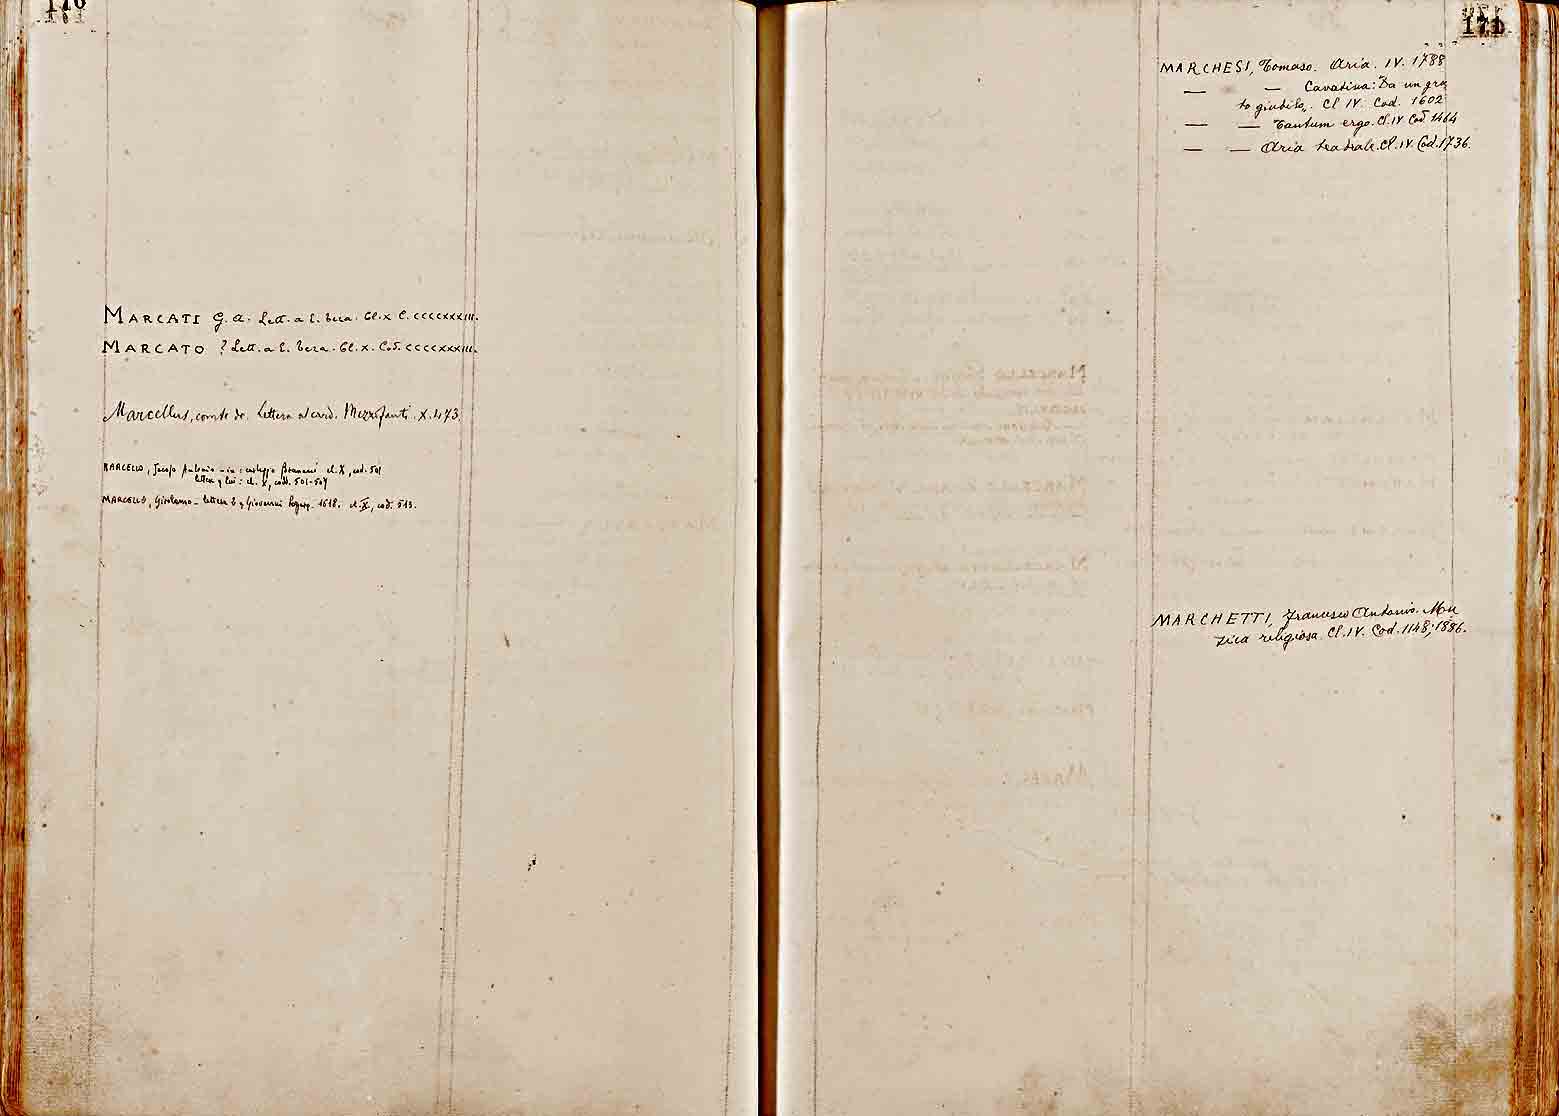 176
MARCATI G. A. Lett. a E. Teza. Cl. X C. CCCCXXXIII.
MARCATO ? Lett. a E. Teza. Cl. X. Cod. CCCCXXXIII.
Marcellus, comte de. Lettera al card. Mezzofanti. X. 473
MARCELLO, Jacopo Antonio – in: cl. X, cod. 501
lettera lui: cl. X, codd. 501-504
MARCELLO, Girolamo – lettera Giovanni 1618. cl. X, cod. 513.
171
MARCHESI, Tomaso. Aria. IV. 1788
— — Cavatina: Da un gra
to giubilo. Cl IV. Cod. 1602
— — Tantum ergo. Cl. IV Cod 1464
— — Aria teatrale. Cl. IV. Cod. 1736.
MARCHETTI, Francesco Antonio. Mu
sica religiosa. Cl. IV. Cod. 1148; 1886.